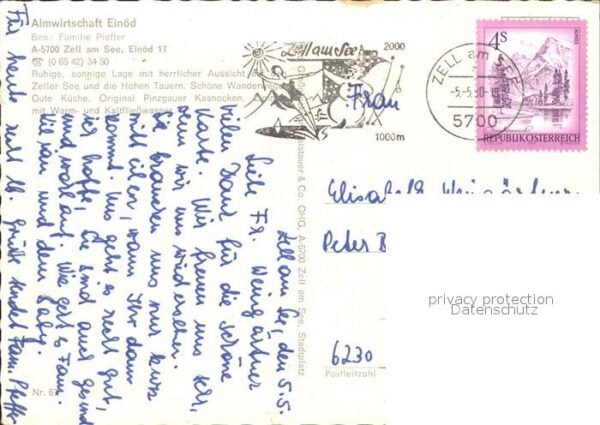 Almwirtschaft Einöd
Bes.: Familie Pfeffer
A-5700 Zell am See, Einöd 17
☎ (0 65 42) 34 50
Ruhige, sonnige Lage mit herrlicher Aussicht
Zeller See und die Hohen Tauern. Schöne Wanderweg
Gute Küche. Original Pinzgauer Kasnocken.
mit Warm- und Kaltfließwasser
Zell am See
2000
1000m
ZELL am SEE
-5.-5.80-18
5700
4S
ALMSEE
REPUBLIK ÖSTERREICH
& Co. OHG., A-5700 Zell am See, Stadtplatz
Zell am See, den 5.5.
Liebe Fr. Weingärtner
Vielen Dank für die schöne
Karte. Wir freuen uns sehr,
wenn wir uns wiedersehen.
Sie brauchen uns nur kurz
mitteilen, wann Ihr dann
kommt. Uns geht es recht gut,
ich hoffe, Sie sind auch gesund
und wohlauf. Wie geht es Fam.
und dem Baby.
Für heute recht lb. Grüße sendet Fam. Pfeffer
Frau
Elisabeth Weingärtner
Peter B
6230
Postleitzahl
Nr. 67
privacy protection
Datenschutz